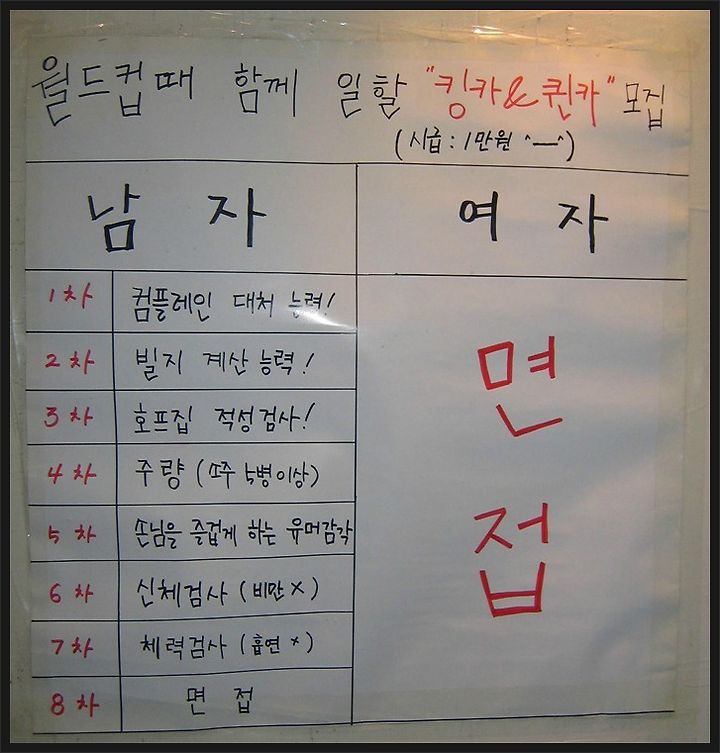 월드컵때 함께 일할 "킹카&퀸카" 모집
(시급 : 1만원 ^—^)
남 자
여 자
1차 컴플레인 대처 능력!
2차 빌지 계산 능력!
3차 호프집 적성검사!
4차 주량 (쏘주 5병이상)
5차 손님을 즐겁게 하는 유머감각
6차 신체검사 (비만 X)
7차 체력검사 (흡연 X)
8차 면 접
면
접